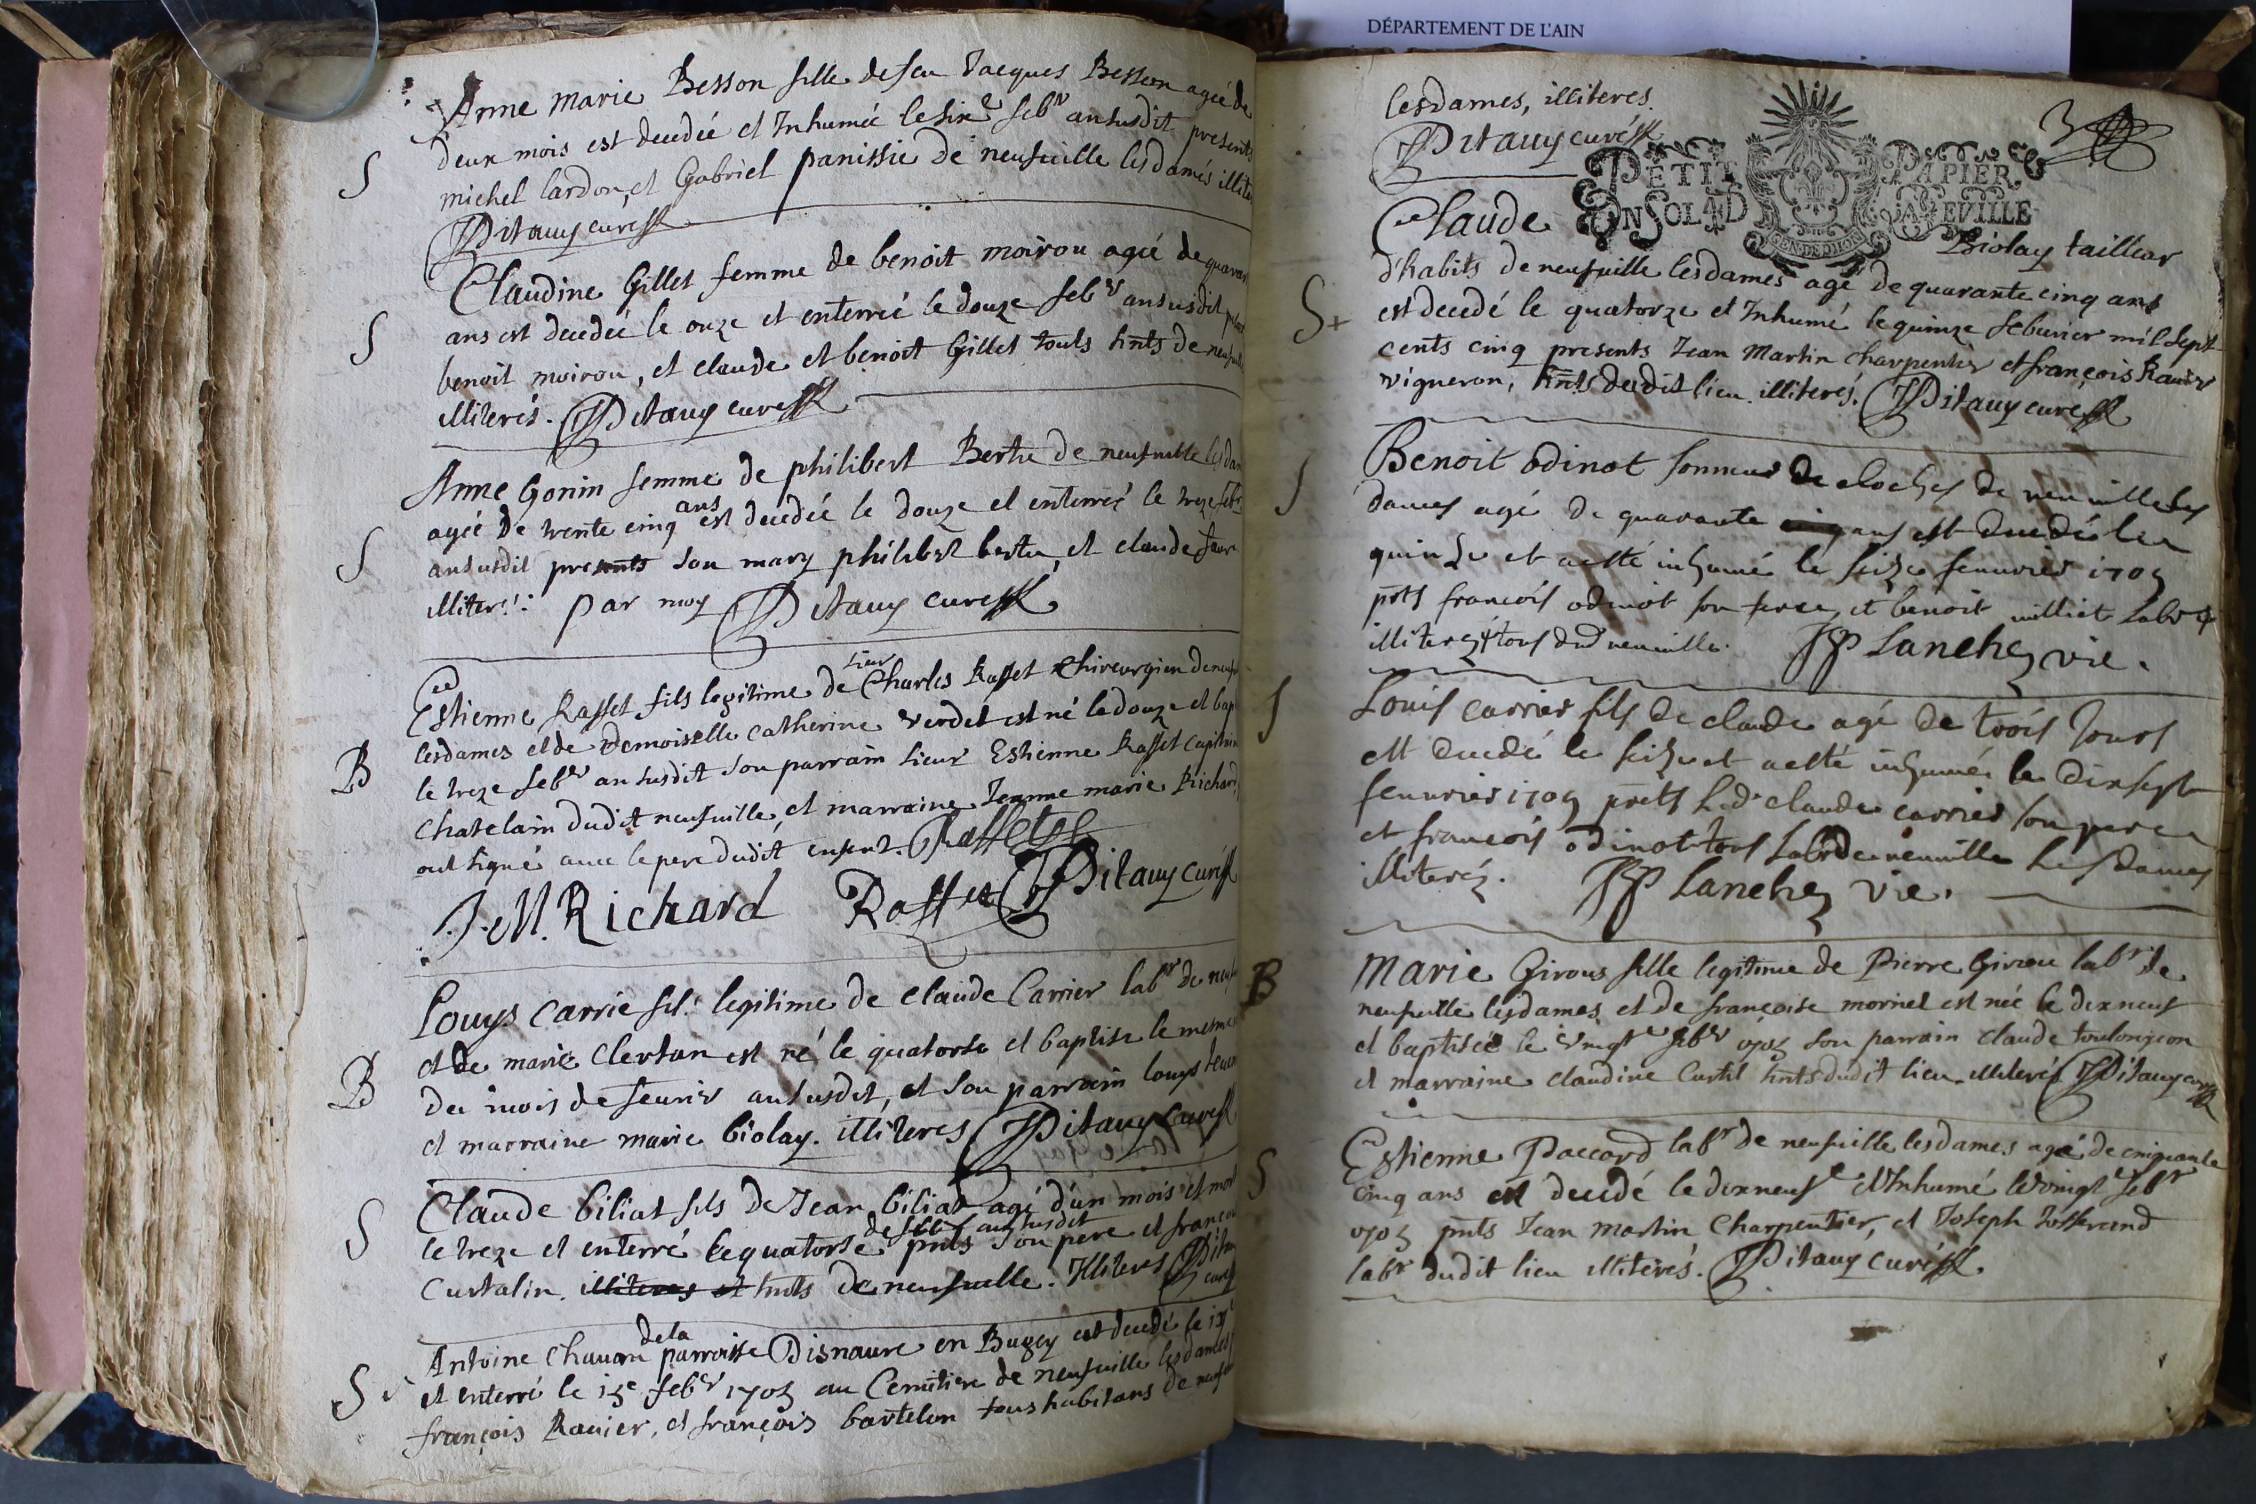 Anne Marie Besson fille de feu Jacques Besson agée de
deux mois est decedée et Inhumée le six.e feb.r an susdit presents
michel lardon, et Gabriel panissie de neufuille lesdames illite
JDitauy curé
Claudine Gillet femme de benoit moirou agée de quaran
ans est decedée le onze et enterrée le douze feb.r an susdit
benoit moirou, et claude et benoit Gillet touts hnts de neufuille
illiterés. JDitauy curé
Anne Gonin femme de philibert Bertu de neufuille lesdam
agée de trente cinq ans est decedée le douze et enterrée le treze feb.r
an susdit presents son mary philibert bertu, et claude
illiter.: par moy JDitauy curé
Estienne Rasset fils legitime de sieur Charles Rasset Chirurgien de neuf
lesdames et de Demoiselle Catherine Verdet est né le douze et bap
le treze feb.r an susdit son parrain sieur Estienne Rasset capitain
chatelain dudit neufuille, et marraine Jeanne marie Richard
ont signé auec le pere dudit enfent. Rasset
J. M. Richard Rasset JDitauy curé
Louys Carrie fil. legitime de Claude Carrier lab.r de neuf
et de marie Clertan est né le quatorse et baptise le mesme
du mois de feurier an susdit, et son parrain louys
et marraine marie biolay. illiteres JDitauy curé
Claude biliat fils de Jean biliat agé d'un mois est mort
le treze et enterré le quatorse de feb.r an susdit pnts son pere et françois
Curtalin. illiteres et hnts de neufuille. Illiteres JDitauy curé
Antoine Chauan de la parroisse Disnaure en Bugey est decedé le
et enterré le 15e feb.r 1705 au Cemitiere de neufuille lesdames
françois Rauier, et françois bartelon tous habitans de neuf
DÉPARTEMENT DE L'AIN
lesdames, illiteres.
JDitauy curé
PETIT PAPIER
UN SOL 4 D LA FEUILLE
GEN DE DIION
Claude Biolay tailleur
d'habits de neufuille lesdames agé de quarante cinq ans
est decedé le quatorze et Inhumé le quinze feburier mil sept
cents cinq presents Jean Martin Charpentier et françois Rauier
vigneron, hnts dudit lieu illiterés. JDitauy curé
Benoit odinot sonneur de cloches de neuuille les
dames agé de quarante cinq ans est decedé le
quinze et a esté inhumé le seize feuurier 1705
pnts francois odinot son frere, et benoit milliet lab.r
illiterez tous dud neuuille. JP Lanchez vic.
Louis carrier fils de claude agé de trois Jours
est decedé le seize et a esté inhumé le dixsept
feuurier 1705 pnts led. claude carrier son pere
et francois odinot tous lab.rs de neuuille les dames
illiterez. JP Lanchez vic.
Marie Girous fille legitime de Pierre Girou lab.r de
neufuille lesdames et de françoise morinet est née le dixneuf
et baptisée le vingt.e feb.r 1705 son parrain claude toulongeon
et marraine claudine Curtil hnts dudit lieu. illiterés JDitauy curé
Estienne Paccard lab.r de neufuille lesdames agé de cinquante
cinq ans est decedé le dixneuf.e et Inhumé le vingt.e feb.r
1705 pnts Jean martin Charpentier, et Joseph Josserand
lab.r dudit lieu illiterés. JDitauy curé
S
S
S
B
B
S
S
S+
S
S
B
S